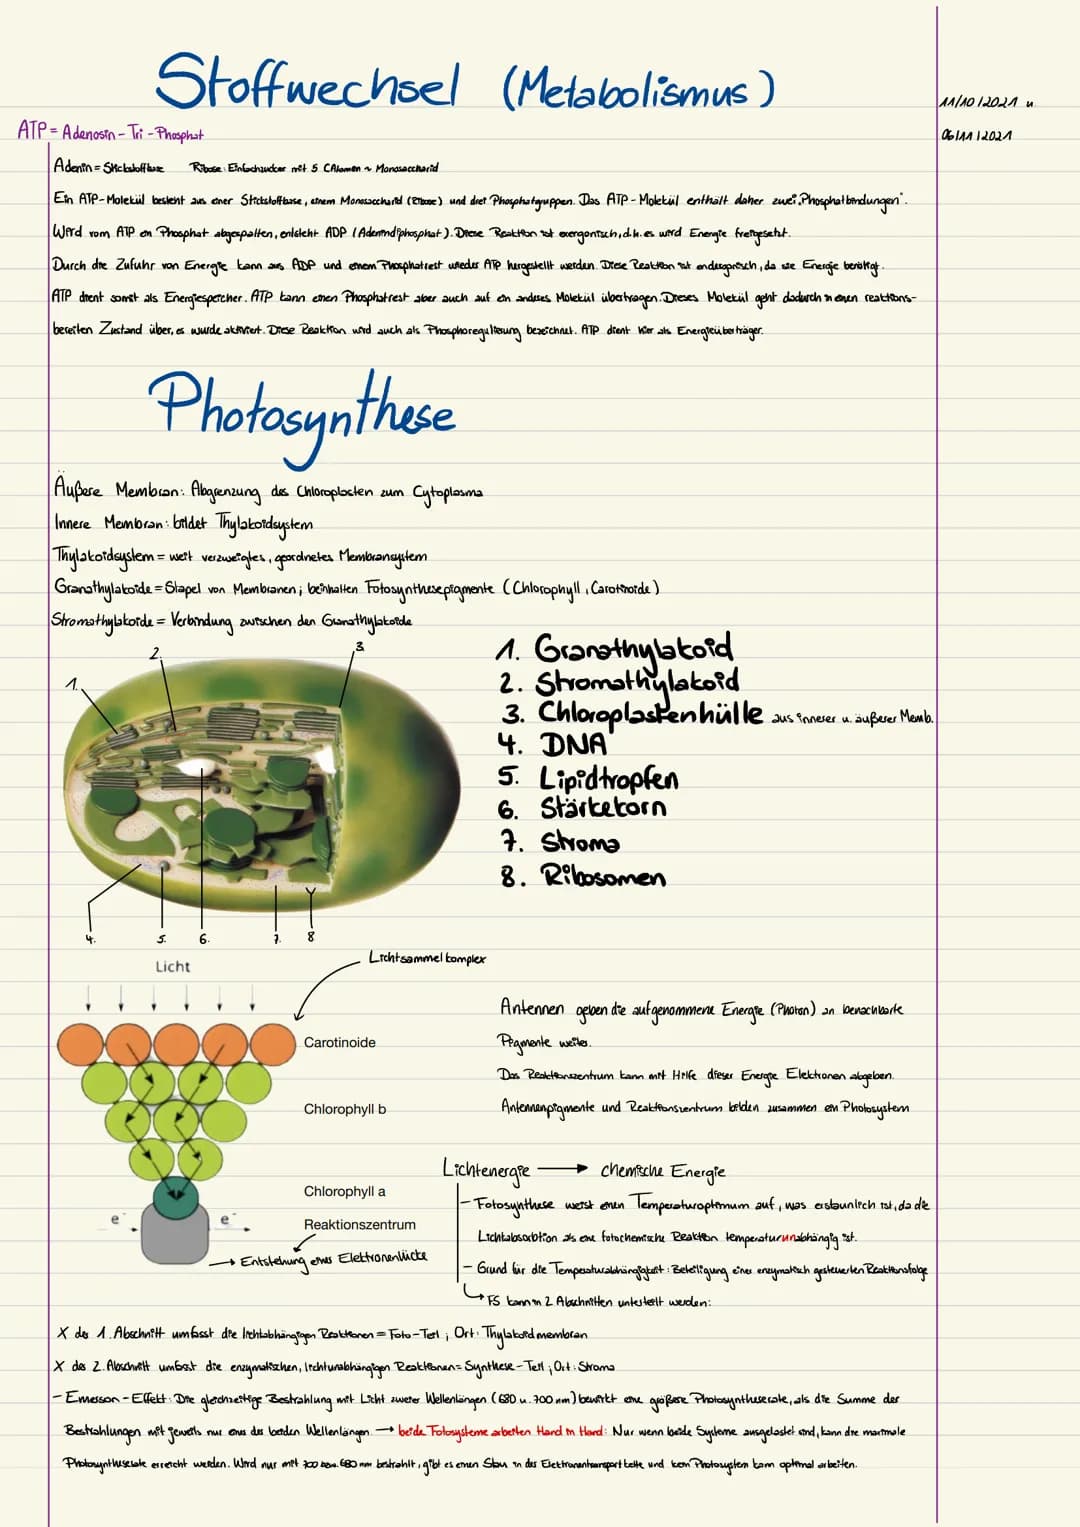 Stoffwechsel (Metabolismus)
11/10/2021 u.
06/11/2021
ATP = Adenosin-Tri-Phosphat
Adenin = Stickstoffbase Ribose: Einfachzucker mit 5 C Atomen ~ Monosaccharid
Ein ATP-Molekül besteht aus einer Stickstoffbase, einem Monosaccharid (Ribose) und drei Phosphatgruppen. Das ATP-Molekül enthält daher zwei „Phosphatbindungen".
Wird vom ATP ein Phosphat abgespalten, entsteht ADP (Adenindiphosphat). Diese Reaktion ist exergonisch, d.h. es wird Energie freigesetzt.
Durch die Zufuhr von Energie kann aus ADP und einem Phosphatrest wieder ATP hergestellt werden. Diese Reaktion ist endergonisch, da sie Energie benötigt.
ATP dient somit als Energiespeicher. ATP kann einen Phosphatrest aber auch auf ein anderes Molekül übertragen. Dieses Molekül geht dadurch in einen reaktions-
bereiten Zustand über, es wurde aktiviert. Diese Reaktion wird auch als Phosphoregulierung bezeichnet. ATP dient hier als Energieüberträger.
Photosynthese
Äußere Membran: Abgrenzung des Chloroplasten zum Cytoplasma
Innere Membran: bildet Thylakoidsystem
Thylakoidsystem = weit verzweigtes, geordnetes Membransystem
Granathylakoide = Stapel von Membranen; beinhalten Fotosynthesepigmente (Chlorophyll, Carotinoide)
Stromathylakoide = Verbindung zwischen den Granathylakoide
1.
2.
3.
4.
5.
6.
7.
8
1. Granathylakoid
2. Stromathylakoid
3. Chloroplastenhülle aus innerer u. äußerer Memb.
4. DNA
5. Lipidtropfen
6. Stärkekorn
7. Stroma
8. Ribosomen
Licht
Lichtsammelkomplex
Carotinoide
Chlorophyll b
Chlorophyll a
Reaktionszentrum
e-
e-
→ Entstehung einer Elektronenlücke
Antennen geben die aufgenommene Energie (Photon) an benachbarte
Pigmente weiter.
Das Reaktionszentrum kann mit Hilfe dieser Energie Elektronen abgeben.
Antennenpigmente und Reaktionszentrum bilden zusammen ein Photosystem
Lichtenergie → chemische Energie
- Fotosynthese weist einen Temperaturoptimum auf, was erstaunlich ist, da die
Lichtabsorbtion als eine fotochemische Reaktion temperaturunabhängig ist.
- Grund für die Temperaturabhängigkeit: Beteiligung einer enzymatisch gesteuerten Reaktionsfolge
↳ FS kann in 2 Abschnitten unterteilt werden:
X der 1. Abschnitt umfasst die lichtabhängigen Reaktionen = Foto-Teil; Ort: Thylakoidmembran
X der 2. Abschnitt umfasst die enzymatischen, lichtunabhängigen Reaktionen = Synthese-Teil; Ort: Stroma
- Emerson-Effekt: Die gleichzeitige Bestrahlung mit Licht zweier Wellenlängen (680 u. 700 nm) bewirkt eine größere Photosyntheserate, als die Summe der
Bestrahlungen mit jeweils nur eins der beiden Wellenlängen. → beide Fotosysteme arbeiten Hand in Hand: Nur wenn beide Systeme ausgelastet sind, kann die maximale
Photosyntheserate erreicht werden. Wird nur mit 700 bzw. 680 nm bestrahlt, gibt es einen Stau in der Elektronentransportkette und kein Photosystem kann optimal arbeiten.